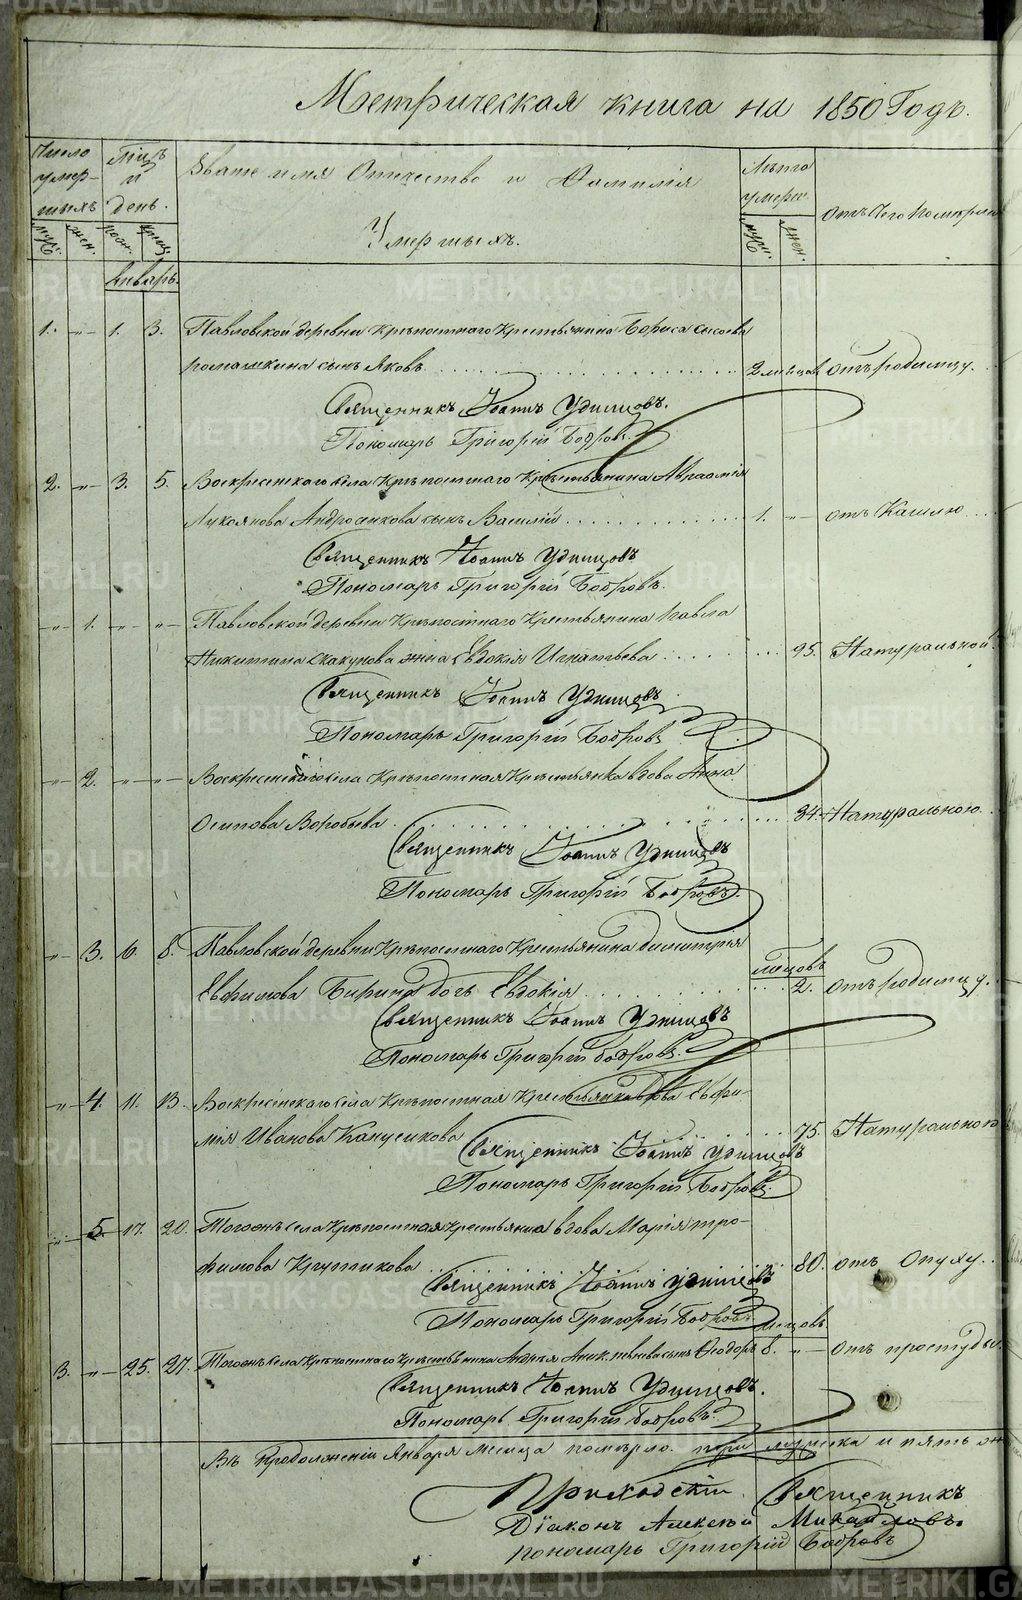 Метрическая книга на 1850 Годъ.
Число умер-шыхъ
Мѣць и день.
Званіе имя Отчество и Фамилія Умершыхъ.
Лѣто умерш.
отъ Чего Померли
муж. жен. муж. жен.
Январь.
1. -„- 1. 3. Павловской деревни Крѣпостнаго Крестьянина Бориса Сысоева
ромашкина сынъ Яковъ 2 мѣсяцов отъ родимцу.
Священникъ Іоаннъ Удинцовъ.
Пономарь Григорій Бобровъ.
2. -„- 3. 5. Воскресенскаго села Крѣпостнаго Крестьянина Авраамія
Лукоянова сынъ Василій 1. -„- отъ Кашлю
Священникъ Іоаннъ Удинцовъ
Пономарь Григорій Бобровъ.
-„- 1. -„- -„- Павловской деревни Крѣпостнаго Крестьянина Павла
Никитина Скакунова жена Евдокія Игнатьева 95. Натуральной.
Священникъ Іоаннъ Удинцовъ.
Пономарь Григорій Бобровъ
-„- 2. -„- -„- Воскресенскаго села Крѣпостная Крестьянка вдова Анна
Осипова Воробьева 84. Натуральною.
Священникъ Іоаннъ Удинцовъ
Пономарь Григорій Бобровъ.
-„- 3. 6. 8. Павловской деревни Крѣпостнаго Крестьянина Димитрія
Евфимова дочь Евдокія мѣцовъ 2. отъ родимцу.
Священникъ Іоаннъ Удинцовъ
Пономарь Григорій бобровъ.
-„- 4. 11. 13. Воскресенскаго села Крѣпостная Крестьянка вдова Евфи-
мія Иванова 75. Натуральною
Священникъ Іоаннъ Удинцовъ
Пономарь Григорій Бобровъ.
-„- 5. 17. 20. села Крѣпостная крестьянка вдова Марія тро-
фимова Крутикова 80. отъ Опуху.
Священникъ Іоаннъ удинцовъ
Пономарь Григорій Бобровъ
мѣцовъ
3. -„- 25. 27. села Крѣпостнаго Крестьянина Андрея сынъ Ѳеодоръ 8. -„- Отъ простуды.
Священникъ Іоаннъ Удинцовъ.
Пономарь Григорій бобровъ.
Въ Продолженіи Января месяца померло. три мужска и пять
Приходскій Священникъ
Діаконъ Алексѣй Михайловъ.
пономарь Григорій Бобровъ
METRIKI.GASO-URAL.RU